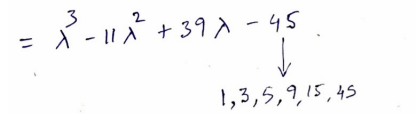 = λ³ - 11λ² + 39λ - 45
1, 3, 5, 9, 15, 45